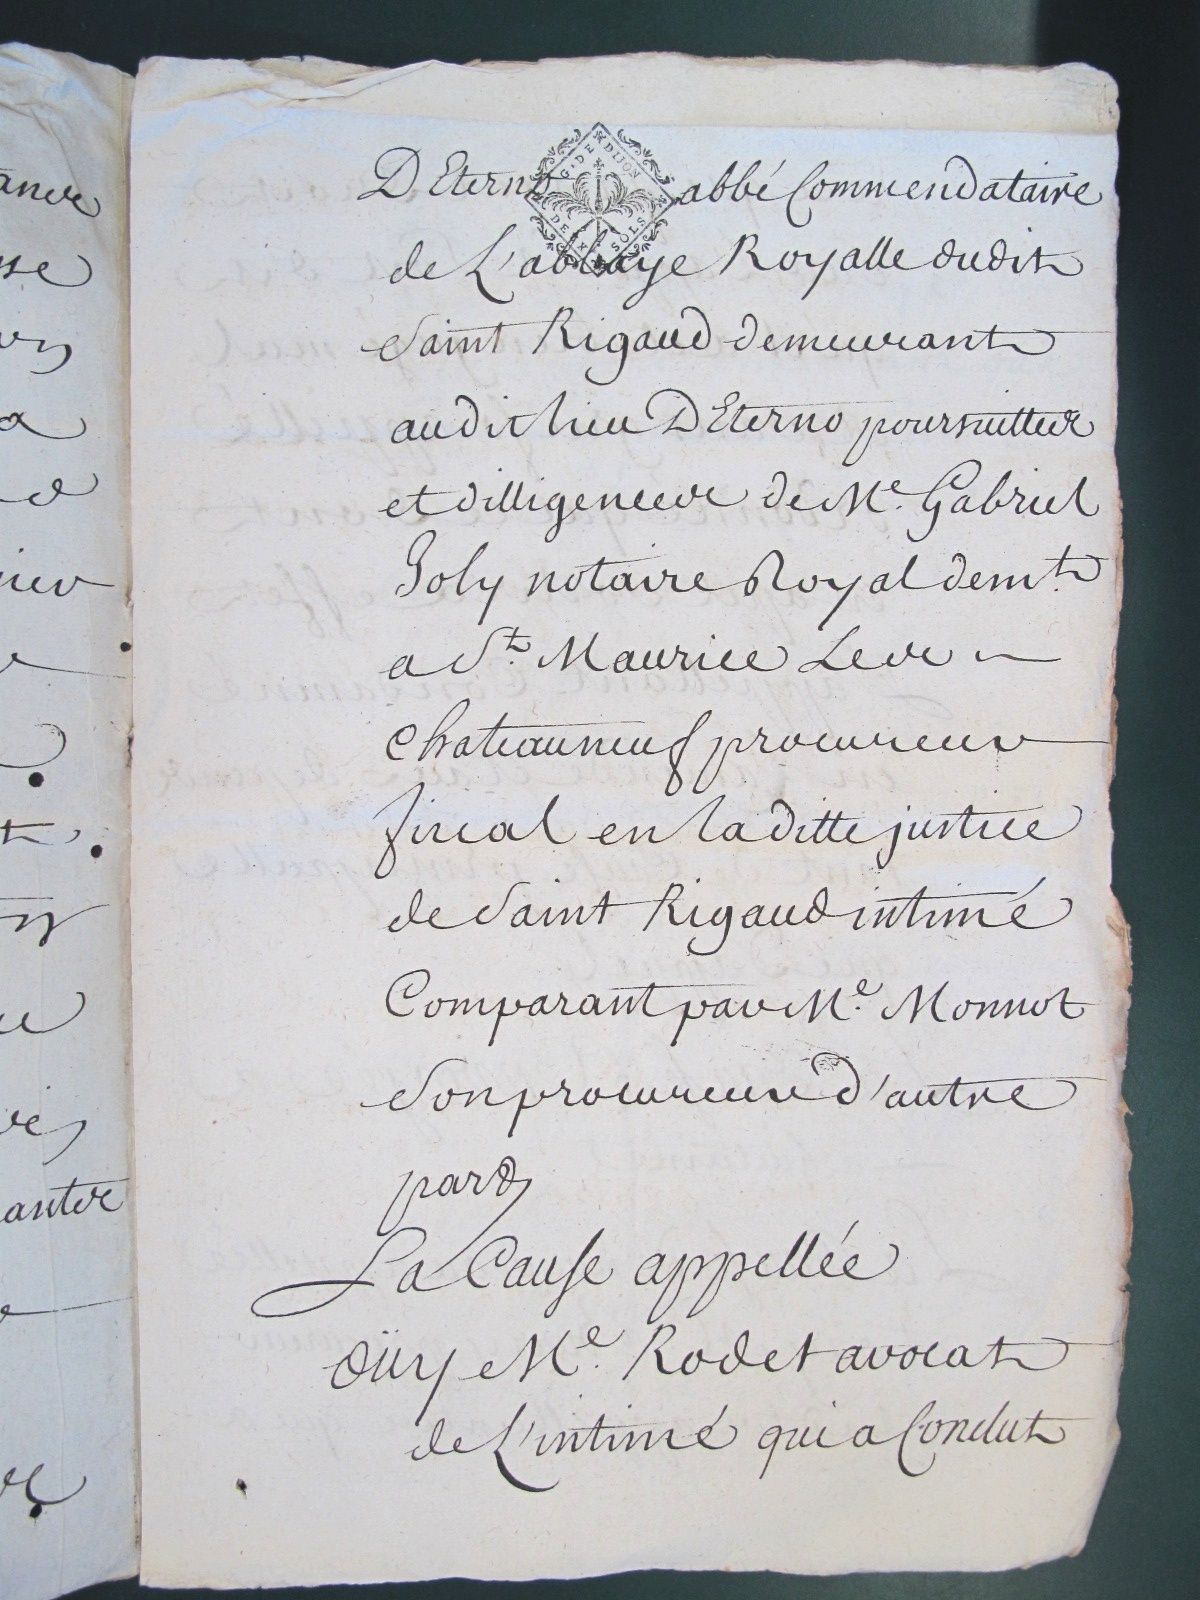 D'Eterno abbé Commendataire
G. DE DIJON
DEUX SOLS
de L'abbaye Royalle dudit
Saint Rigaud demeurant
audit lieu D'Eterno poursuitte
et dilligence de Me. Gabriel
Joly notaire Royal demt.
a St. Maurice Le
chateauneuf procureur
fiscal en laditte justice
de Saint Rigaud intimé
Comparant par Me. Monnot
Son procureur d'autre
part
La Cause appellée
oüy Me. Rodet avocat
de L'intimé qui a Conclut